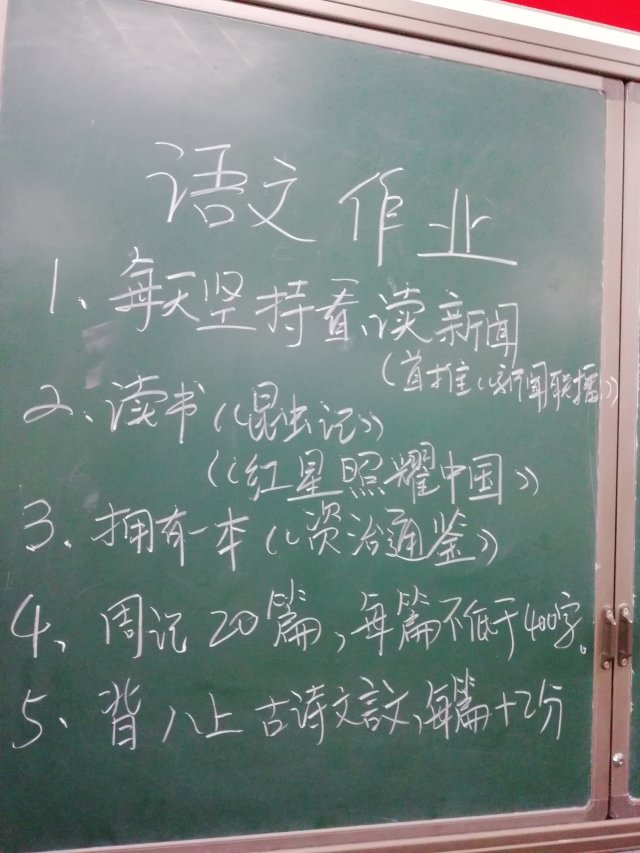 语文作业
1、每天坚持看、读新闻
(首推《新闻联播》)
2、读书《昆虫记》
《红星照耀中国》
3、拥有一本《资治通鉴》
4、周记20篇,每篇不低于400字。
5、背八上古诗文言文,每篇+2分